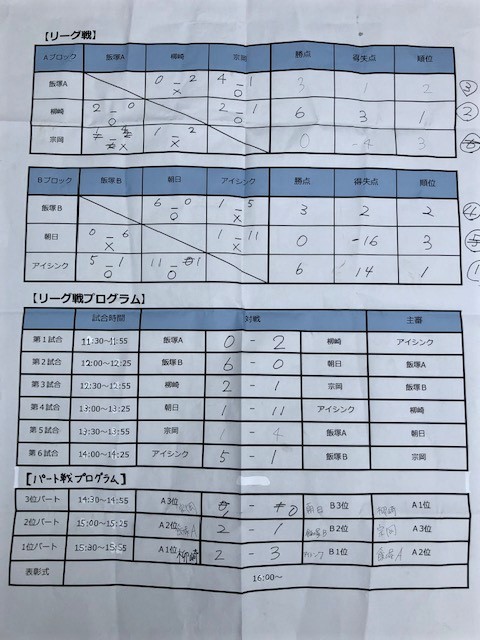 【リーグ戦】
Aブロック 飯塚A 柳崎 宗岡 勝点 得失点 順位
飯塚A 0 - 2 × 4 - 1 ○ 3 1 2 ③
柳崎 2 - 0 ○ 2 - 1 ○ 6 3 1 ②
宗岡 × 1 - 2 × 0 -4 3
Bブロック 飯塚B 朝日 アイシンク 勝点 得失点 順位
飯塚B 6 - 0 ○ 1 - 5 × 3 2 2 ④
朝日 0 - 6 × 1 - 11 × 0 -16 3 ⑤
アイシンク 5 - 1 ○ 11 - 1 ○ 6 14 1 ①
【リーグ戦プログラム】
試合時間 対戦 主審
第1試合 11:30~11:55 飯塚A 0 - 2 柳崎 アイシンク
第2試合 12:00~12:25 飯塚B 6 - 0 朝日 飯塚A
第3試合 12:30~12:55 柳崎 2 - 1 宗岡 飯塚B
第4試合 13:00~13:25 朝日 1 - 11 アイシンク 柳崎
第5試合 13:30~13:55 宗岡 1 - 4 飯塚A 朝日
第6試合 14:00~14:25 アイシンク 5 - 1 飯塚B 宗岡
【パート戦プログラム】
3位パート 14:30~14:55 A3位 宗岡 - 0 朝日 B3位 柳崎 A1位
2位パート 15:00~15:25 A2位 飯塚A 2 - 1 飯塚B B2位 宗岡 A3位
1位パート 15:30~15:55 A1位 柳崎 2 - 3 アイシンク B1位 飯塚A A2位
表彰式 16:00~